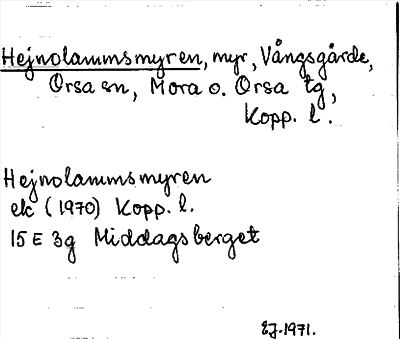 Hejnolammsmyren, myr, Vångsgärde,
Orsa sn, Mora o. Orsa tg,
Kopp. l.
Hejnolammsmyren
ek (1970) Kopp. l.
15 E 3g Middagsberget
EJ. 1971.